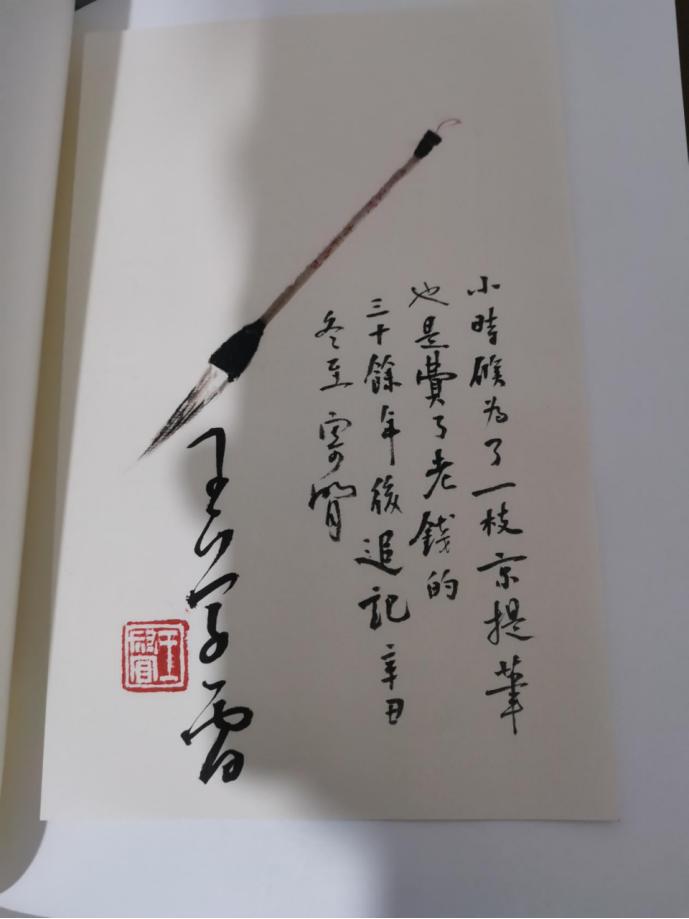 小時候為了一枝京提筆
也是費了老錢的
三十餘年後追記 辛丑
冬至 寄閒
王